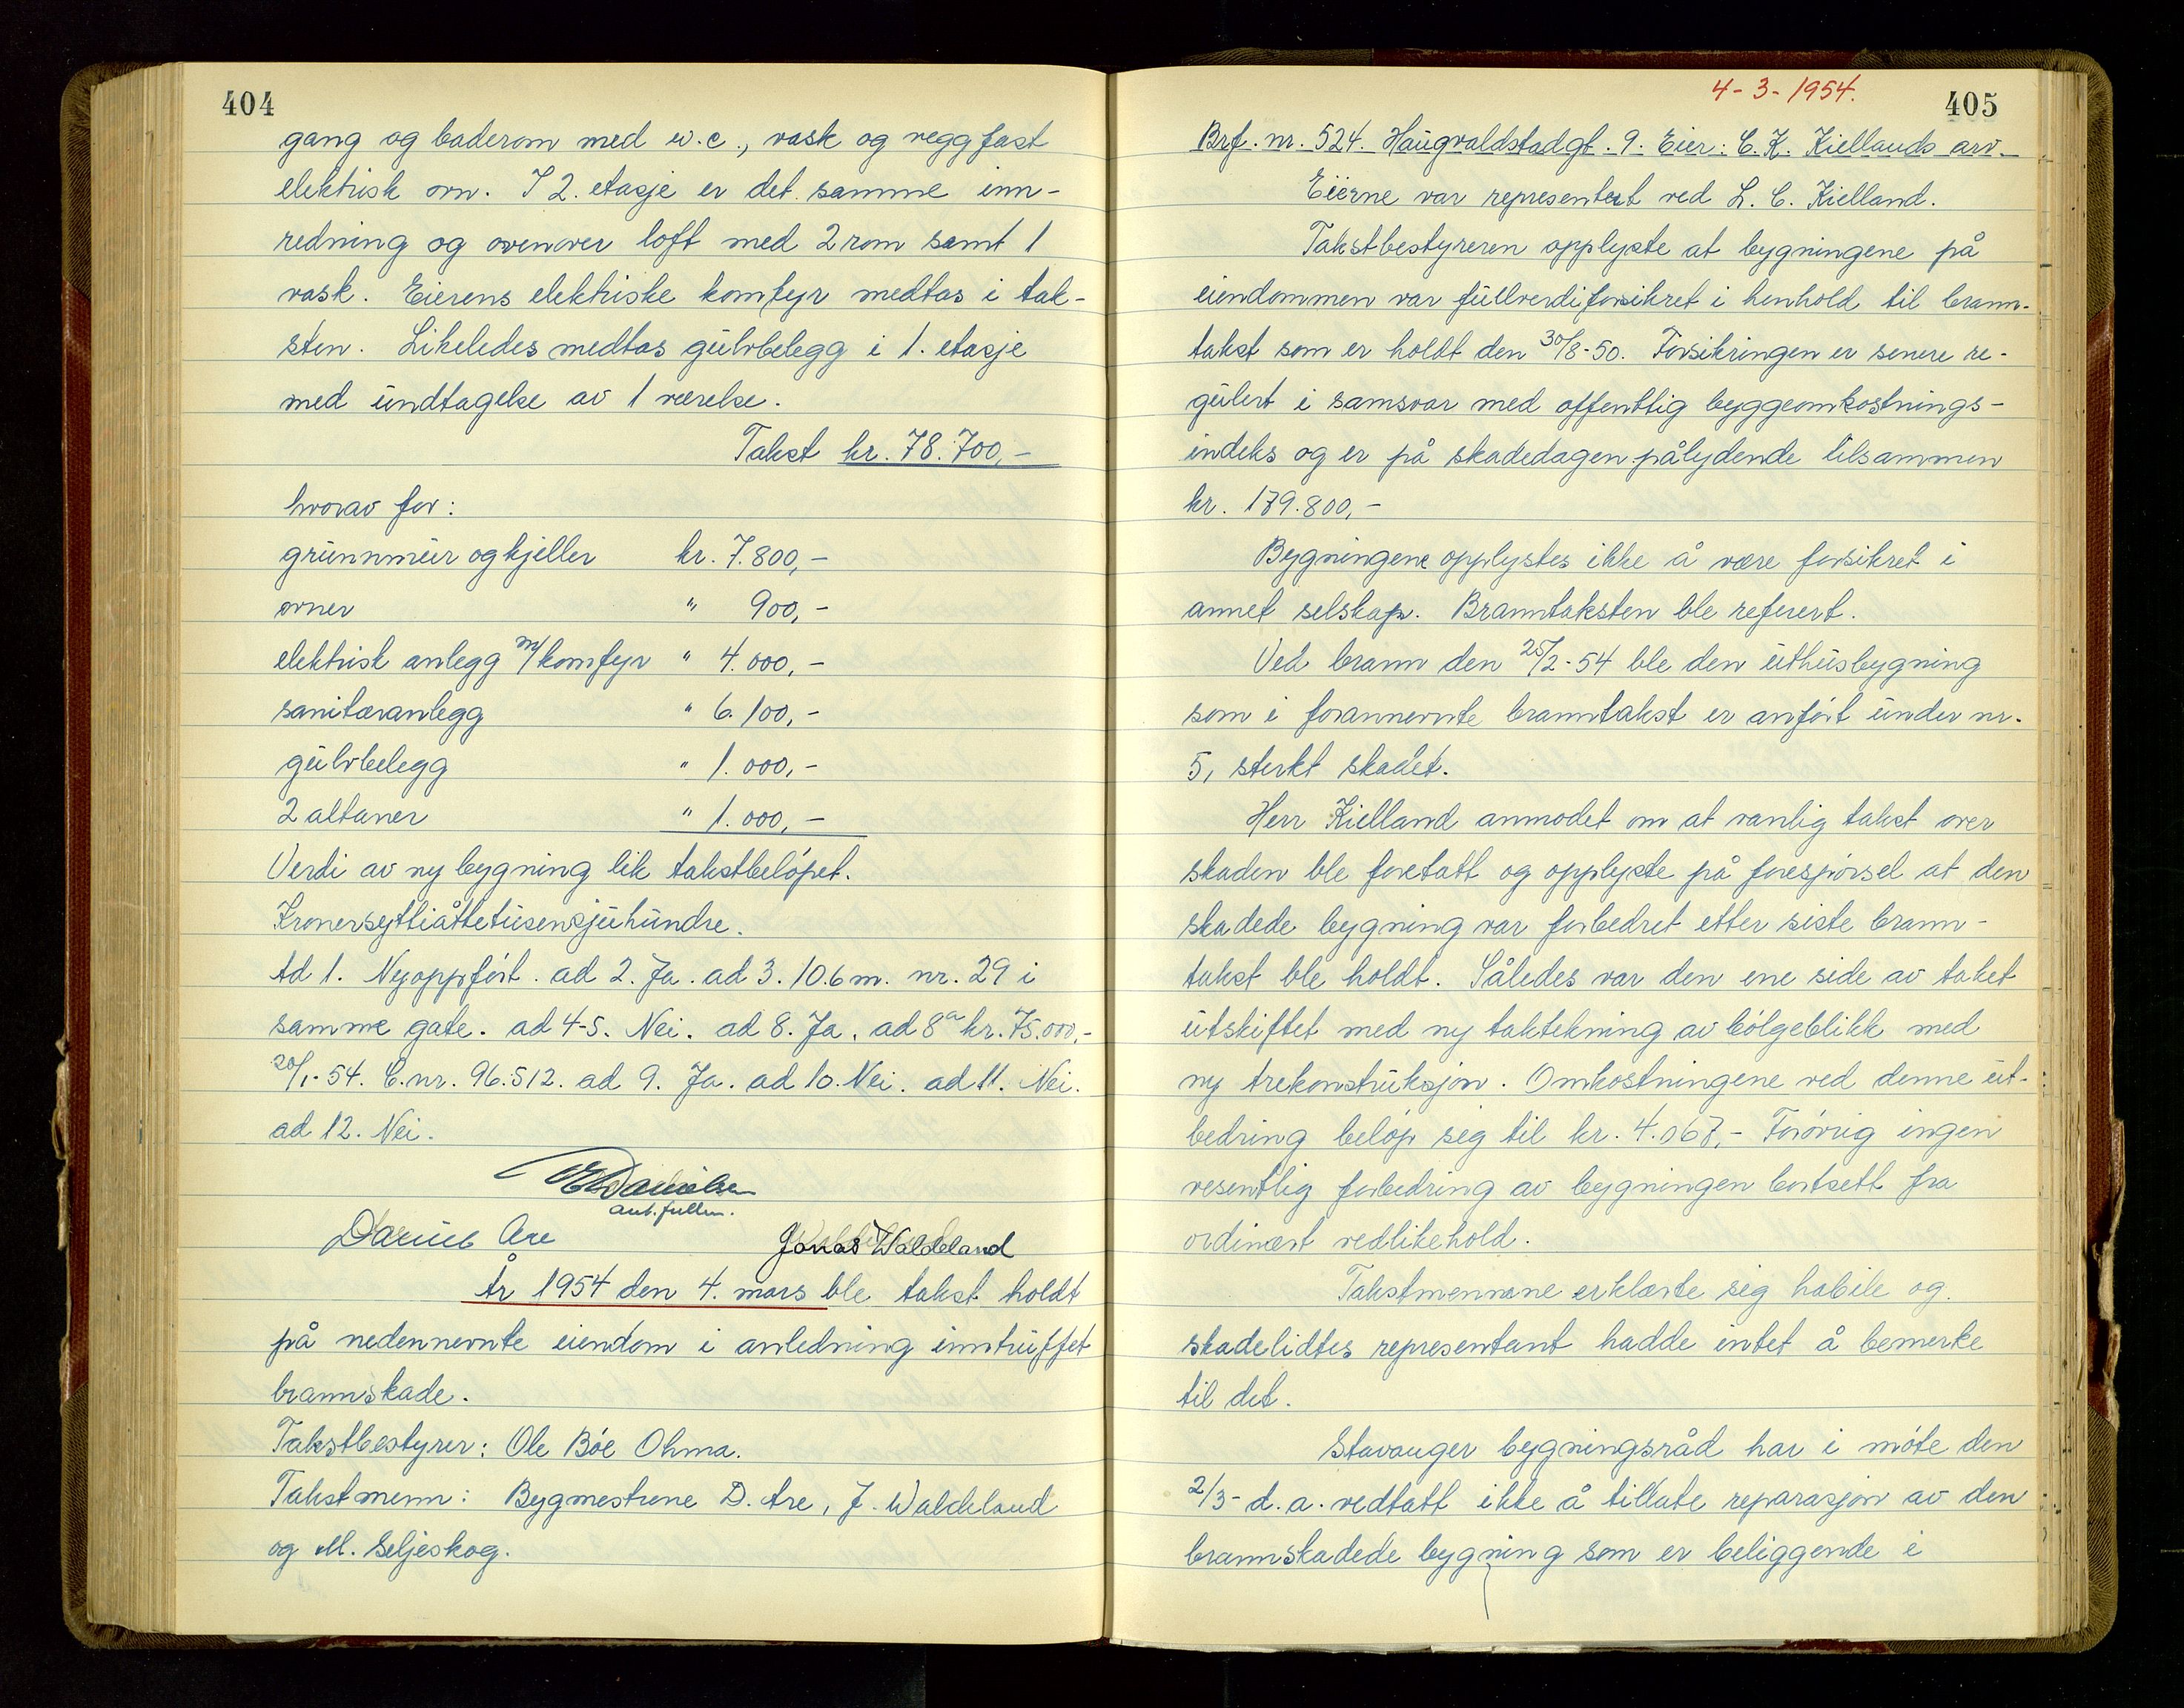 404
gang og baderom med w.c., vask og veggfast
elektrisk ovn. I 2. etasje er det samme inn-
redning og ovenover loft med 2 rom samt 1
vask. Eierens elektriske komfyr medtas i tak-
sten. Likeledes medtas gulvbelegg i 1. etasje
med undtagelse av 1 værelse.
Takst kr. 78.700,-
hvorav for:
grunnmur og kjeller kr. 7.800,-
ovner " 900,-
elektrisk anlegg m/komfyr " 4.000,-
sanitæranlegg " 6.100,-
gulvbelegg " 1.000,-
2 altaner " 1.000,-
Verdi av ny bygning lik takstbeløpet.
Kronersyttiåttetusensjuhundre.
Ad 1. Nyoppført. ad 2. Ja. ad 3. 10.6 m. nr. 29 i
samme gate. ad 4-5. Nei. ad 8. Ja. ad 8a kr. 75.000,-
20/1-54. C.nr. 96.512. ad 9. Ja. ad 10. Nei. ad 11. Nei.
ad 12. Nei.
Danielsen
aut. fullm.
Darius Are Jonas Waldeland
År 1954 den 4. mars ble takst holdt
på nedennevnte eiendom i anledning inntruffet
brannskade.
Takstbestyrer: Ole Bøe Ohma.
Takstmenn: Bygmestrene D. Are, J. Waldeland
og M. Seljeskog.
4-3-1954.
405
Brf. nr. 524. Haugvaldstadgt. 9. Eier: C. K. Kiellands arv.
Eierne var representert ved L. C. Kielland.
Takstbestyreren opplyste at bygningene på
eiendommen var fullverdiforsikret i henhold til brann-
takst som er holdt den 30/8-50. Forsikringen er senere re-
gulert i samsvar med offentlig byggeomkostnings-
indeks og er på skadedagen pålydende tilsammen
kr. 179.800,-
Bygningene opplystes ikke å være forsikret i
annet selskap. Branntaksten ble referert.
Ved brann den 25/2-54 ble den uthusbygning
som i forannevnte branntakst er anført under nr.
5, sterkt skadet.
Herr Kielland anmodet om at vanlig takst over
skaden ble foretatt og opplyste på forespørsel at den
skadede bygning var forbedret etter siste brann-
takst ble holdt. Således var den ene side av taket
utskiftet med ny taktekning av bølgeblikk med
ny trekonstruksjon. Omkostningene ved denne ut-
bedring beløp seg til kr. 4.067,- Forøvrig ingen
vesentlig forbedring av bygningen bortsett fra
ordinært vedlikehold.
Takstmennene erklærte seg habile og
skadelidtes representant hadde intet å bemerke
til det.
Stavanger bygningsråd har i møte den
2/3- d.a. vedtatt ikke å tillate reparasjon av den
brannskadede bygning som er beliggende i